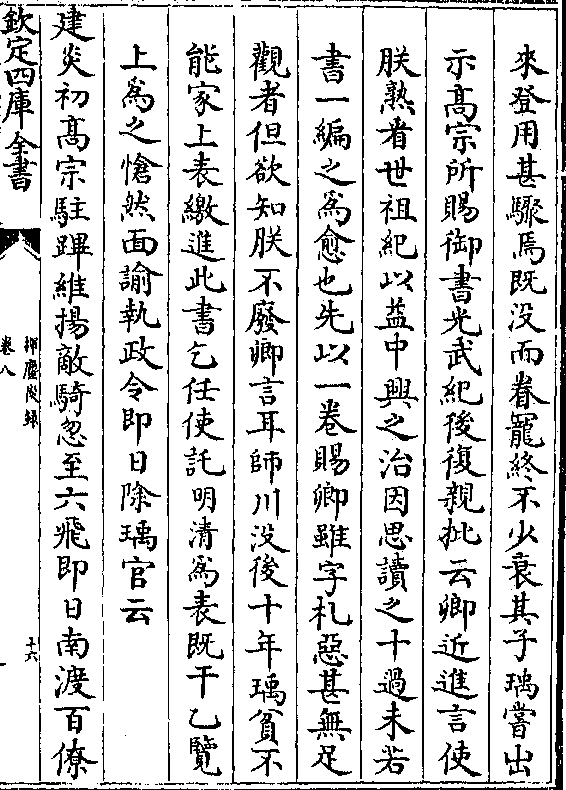 來登用甚驟焉既没而眷寵終不少衰其子瑀嘗出
示髙宗所賜御書光武紀後復親批云卿近進言使
朕熟看世祖紀以益中興之治因思讀之十過未若
書一編之為愈也先以一卷賜卿雖字札惡甚無足
觀者但欲知朕不廢卿言耳師川没後十年瑀貧不
能家上表繳進此書乞任使託明清為表既干乙覽
上為之愴然面諭執政令即日除瑀官云
建炎初髙宗駐蹕維揚敵騎忽至六飛即日南渡百僚
欽定四庫全書
揮麈後録
卷八
十六